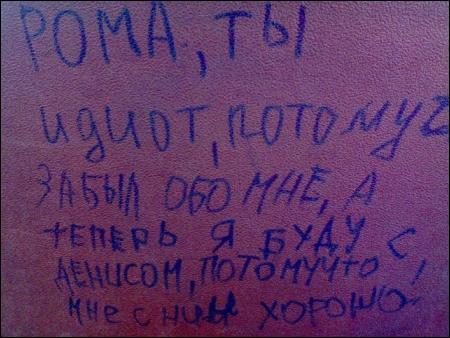 РОМА, ТЫ
ИДИОТ, ПОТОМУЧ
ЗАБЫЛ ОБО МНЕ, А
ТЕПЕРЬ Я БУДУ С
ДЕНИСОМ, ПОТОМУЧТО
МНЕ С НИМ ХОРОШО!